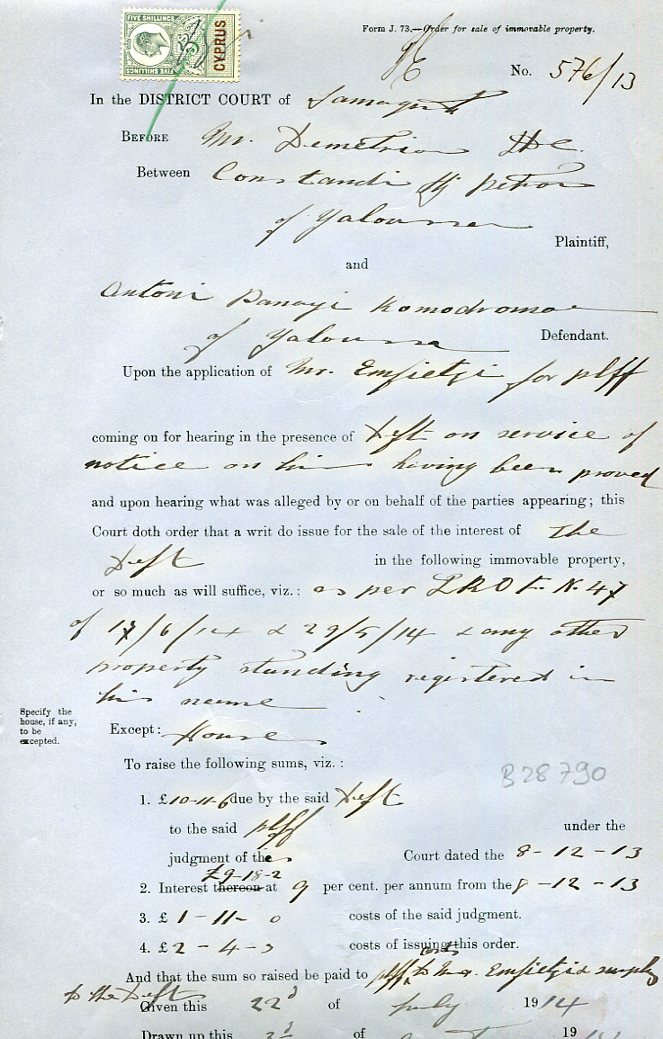 FIVE SHILLINGS
CYPRUS
FIVE SHILLINGS
Form J. 73.—Order for sale of immovable property.
No. 576/13
In the DISTRICT COURT of Famagusta
BEFORE Mr. Demetriou
Between Constandi Hj petrou
of Yaloussa
Plaintiff,
and
Antoni Panayi Komodromo
of Yaloussa Defendant.
Upon the application of Mr. Emfietzi for plff
coming on for hearing in the presence of Deft on service of
notice on him having been proved
and upon hearing what was alleged by or on behalf of the parties appearing; this
Court doth order that a writ do issue for the sale of the interest of the
Deft in the following immovable property,
or so much as will suffice, viz.: as per LRO F. N. 47
of 17/6/14 & 29/5/14 & any other
property standing registered in
his name
Specify the
house, if any,
to be
excepted.
Except: House
To raise the following sums, viz.:
B28790
1. £10-11-6 due by the said Deft
to the said plff under the
judgment of the Court dated the 8-12-13
£9-18-2
2. Interest thereon at 9 per cent. per annum from the 8-12-13
3. £1-11-0 costs of the said judgment.
4. £2-4-3 costs of issuing this order.
costs
And that the sum so raised be paid to plff & Mr. Emfietzi & surplus
to the Deft
Given this 22d of July 1914
Drawn up this 3d of 19